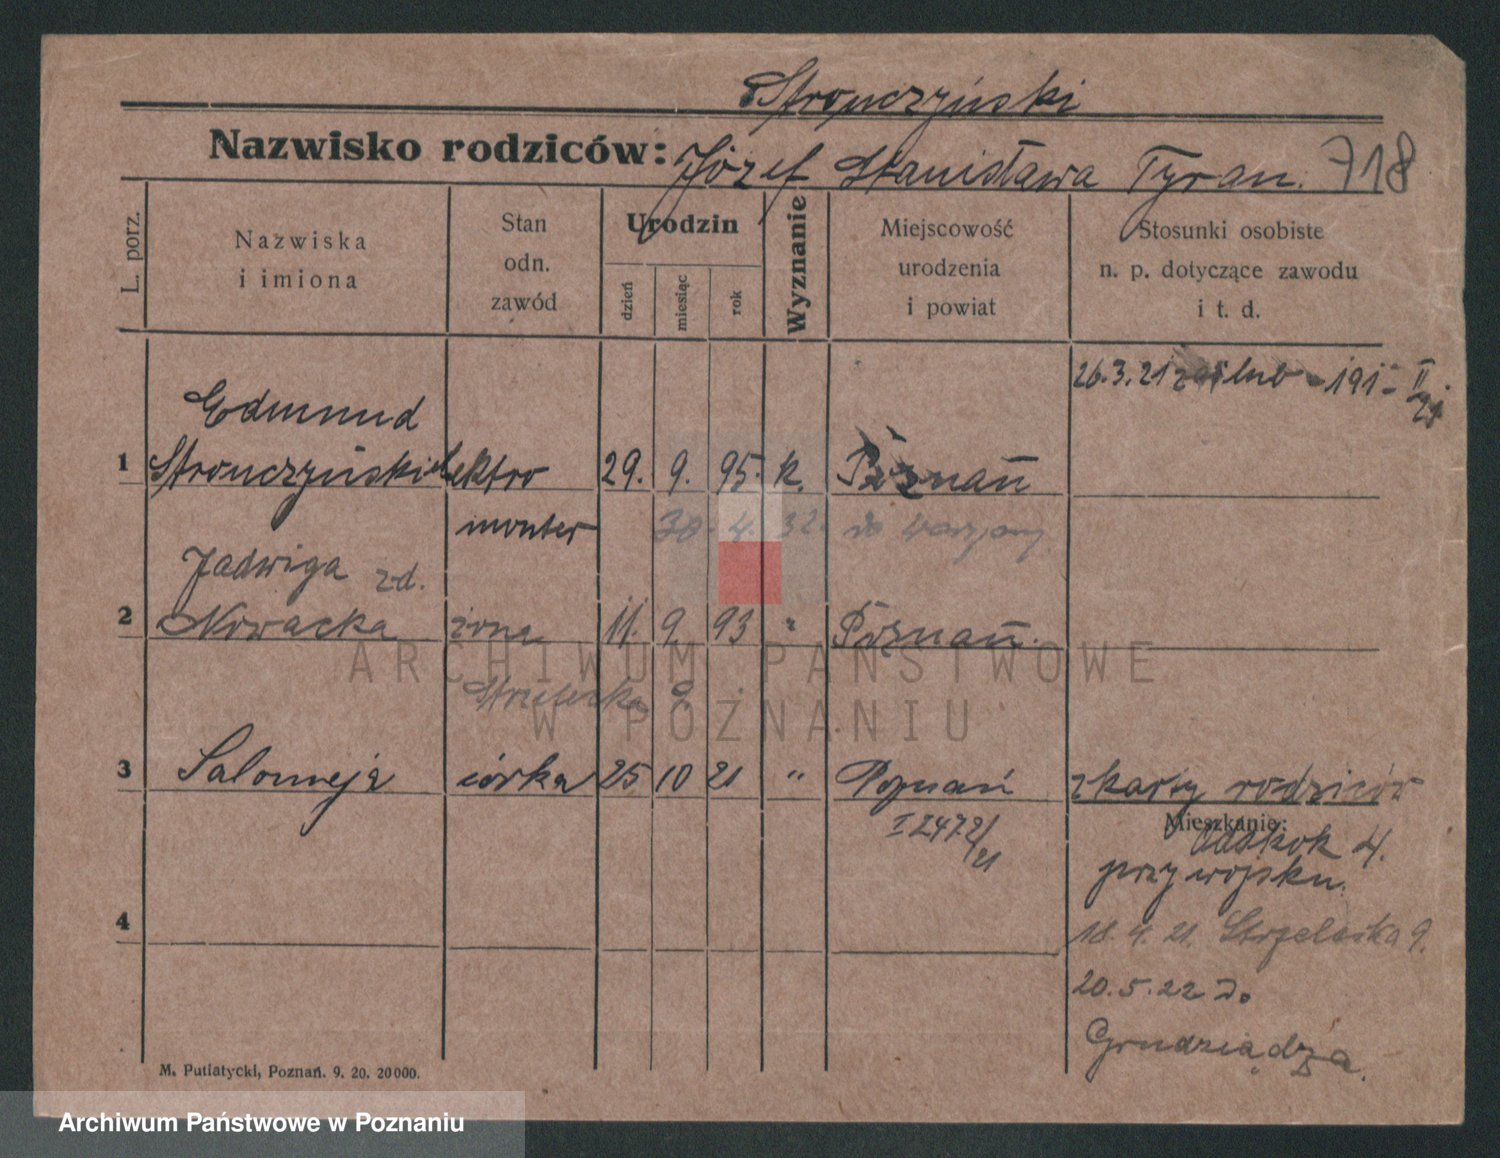 Stronczyński
Nazwisko rodziców: Józef Stanisława Tyran. 718
L. porz.
Nazwiska
i imiona
Stan
odn.
zawód
Urodzin
dzień
miesiąc
rok
Wyznanie
Miejscowość
urodzenia
i powiat
Stosunki osobiste
n. p. dotyczące zawodu
i t. d.
26.3.21 ślub 191 II 21
Edmund
1 Stronczyński elektro 29. 9. 95. k. Poznań
monter 30. 4. 32. do
Jadwiga zd.
2 Nowacka żona 11. 9. 93 " Poznań.
ARCHIWUM PAŃSTWOWE
Strzelecka 9.
W POZNANIU
3 Salomeja córka 25 10 21 " Poznań z karty rodziców
I 2472/21
Mieszkanie:
4.
przy wojsku.
4
18.4.21. Strzelecka 9.
20.5.22 do
Grudziądza.
M. Putiatycki, Poznań. 9. 20. 20000.
Archiwum Państwowe w Poznaniu